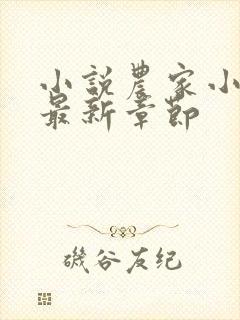 小説農家小
最新章節
磯谷友紀